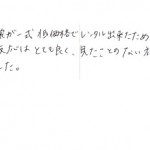 が一式 低価格で レンタル出来たため
は とても良く、見たことのない
た。